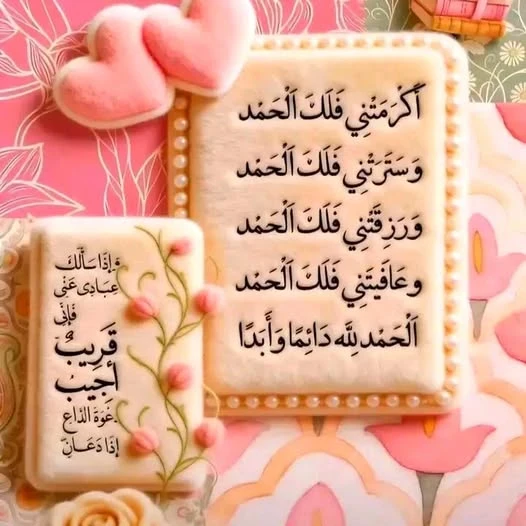 أَكْرَمْتَنِي فَلَكَ الْحَمْد
وَسَتَرْتَنِي فَلَكَ الْحَمْد
وَرَزَقْتَنِي فَلَكَ الْحَمْد
وعَافَيتَنِي فَلَكَ الْحَمْد
الْحَمْد لِلَّه دَائِمًا وَأَبَدًا
وَإِذَا سَأَلَكَ
عِبَادِى عَنِّى
فَإِنِّى
قَرِيبٌ
أُجِيبُ
دَعْوَةَ الدَّاعِ
إِذَا دَعَانِ